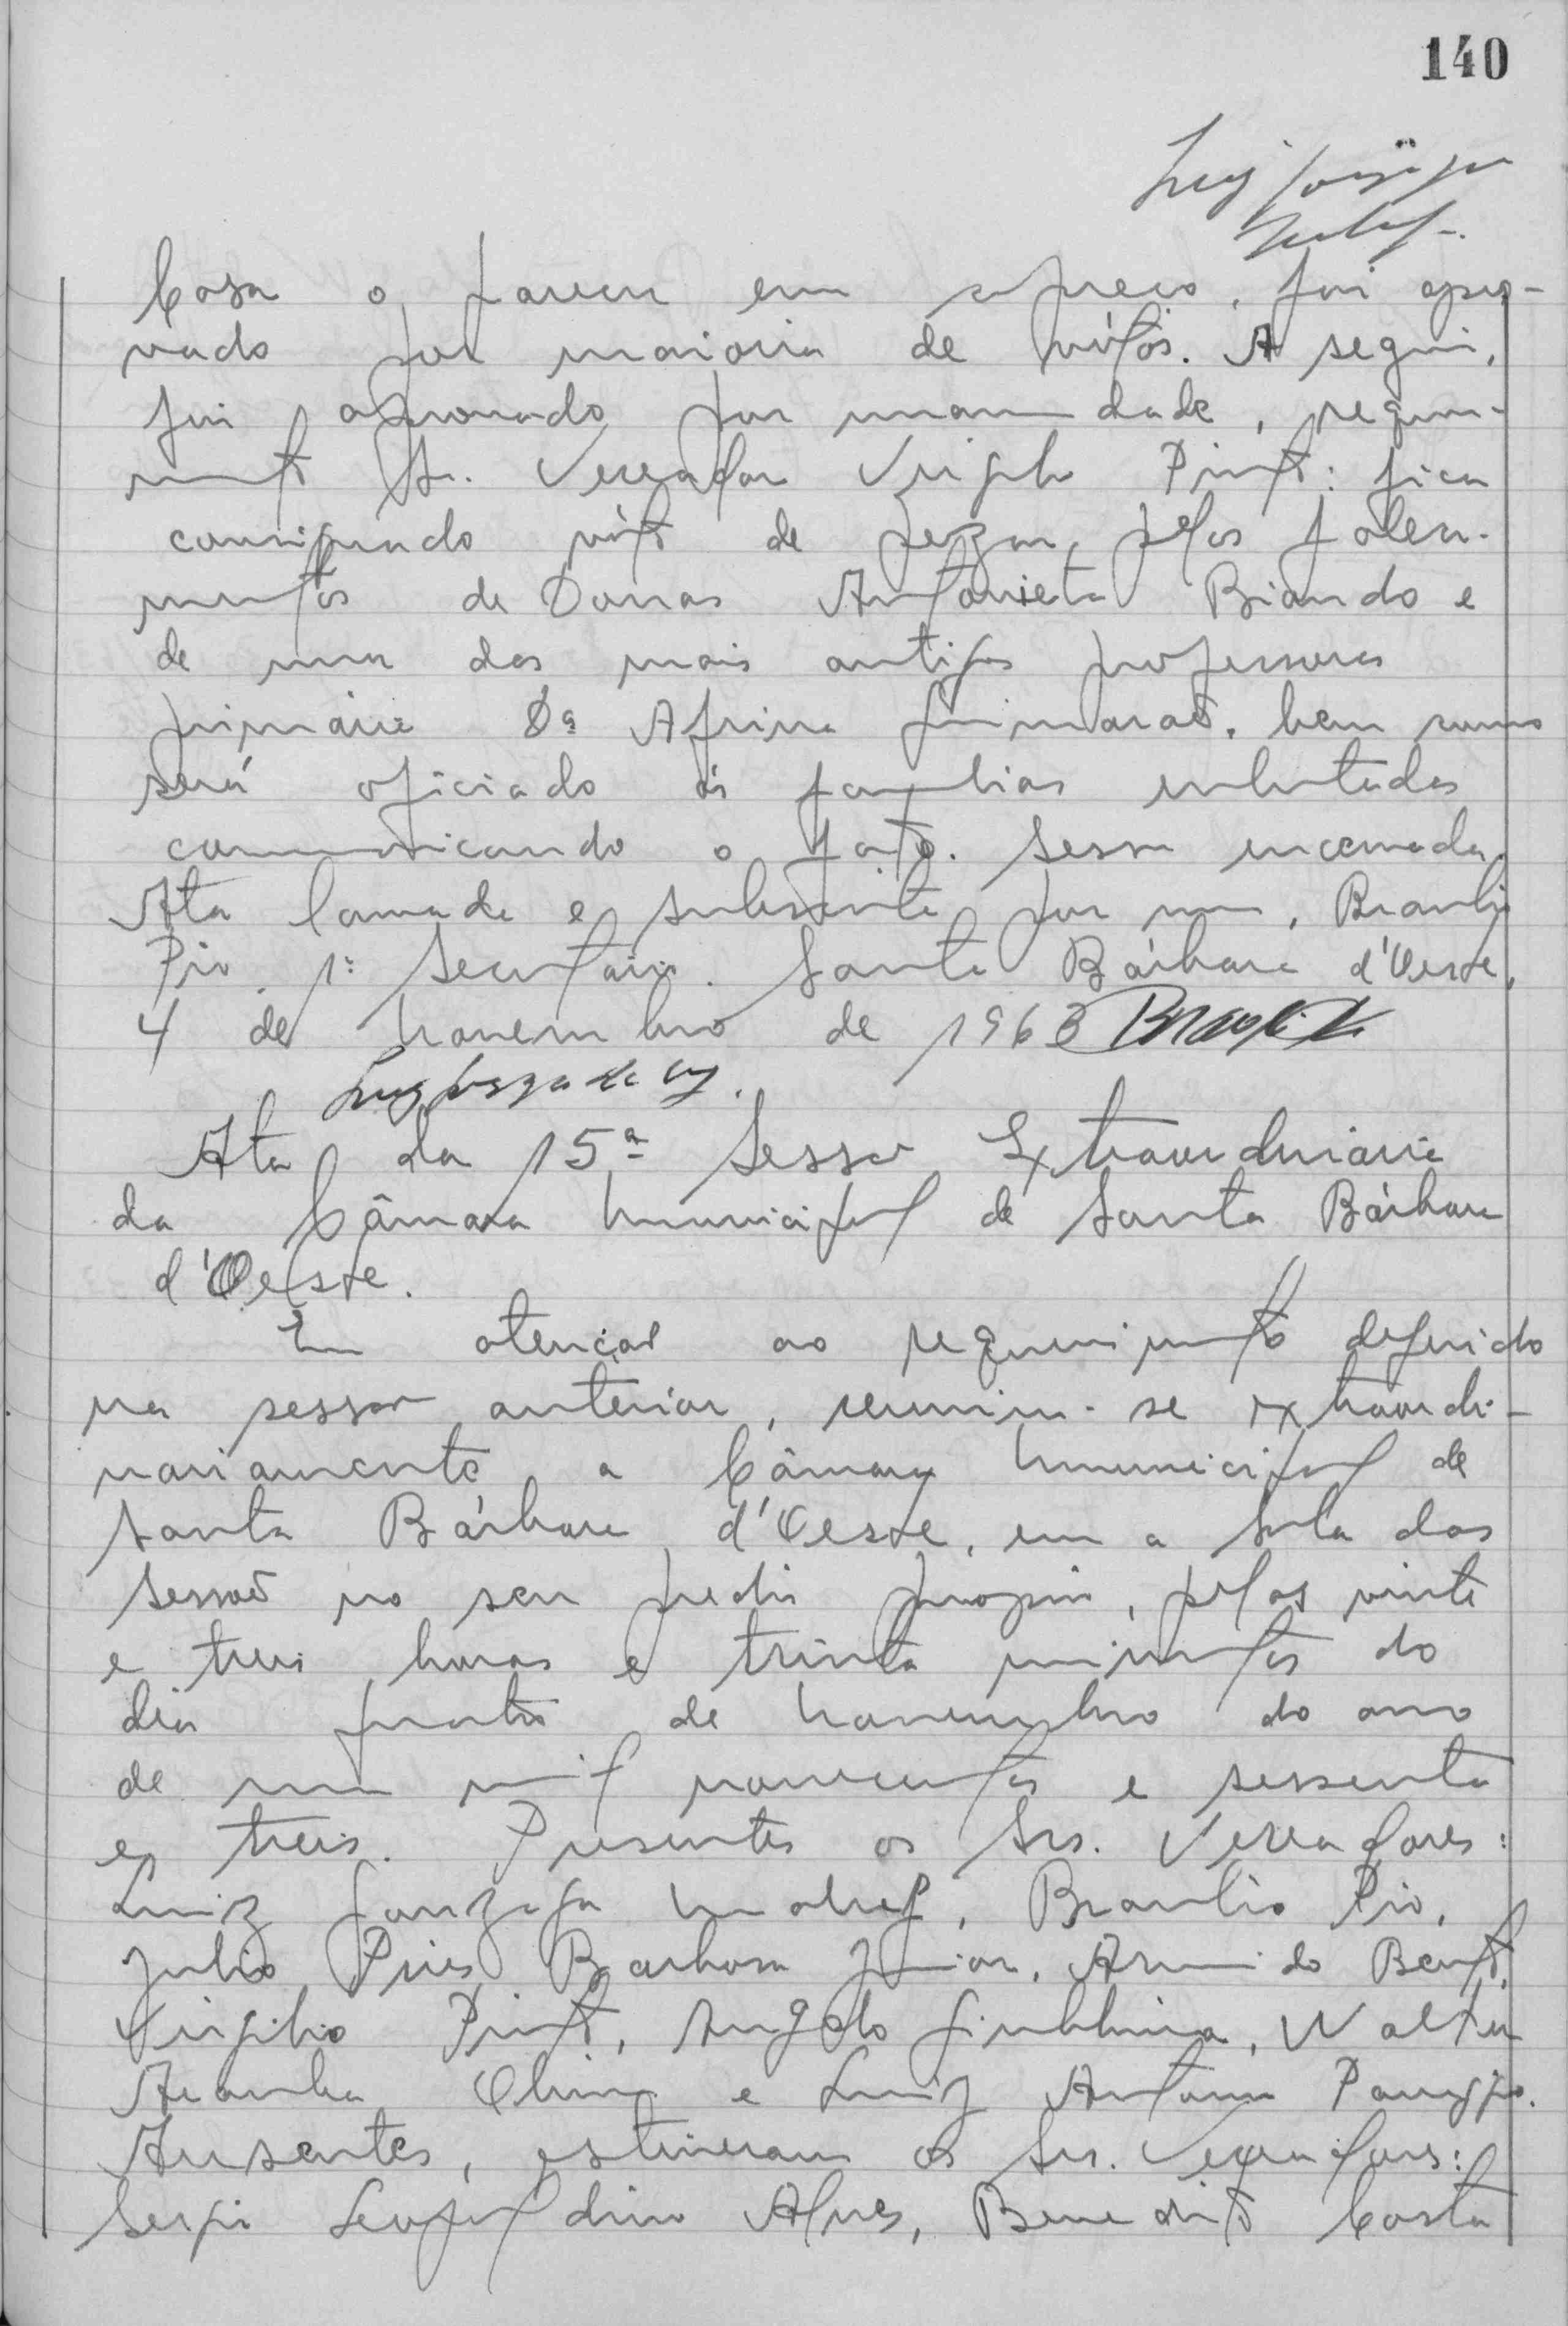 140
Casa o parecer em apreço, foi apro-
vado por maioria de vótos. A seguir,
foi aprovado por unanimidade, requeri-
mento Sr. Vereador Virgilio Pinto: fica
consignado vóto de pezar, pelos falec-
mentos de Donas Antonieta Biando e
de uma das mais antigas professoras
primária Dª Afrina Guimarães, bem como
será oficiado ás familias enlutadas
comunicando o fato. Sessão encerrada.
Ata lavrada e subscrita por mim, Braulio
Pio, 1º Secretário. Santa Bárbara d'Oeste,
4 de Novembro de 1963
Ata da 15ª Sessão Extraordinária
da Câmara Municipal de Santa Bárbara
d'Oeste.
Em atenção ao requerimento deferido
na sessão anterior, reuniu-se extraordi-
nariamente a Câmara Municipal de
Santa Bárbara d'Oeste, em a Sala das
Sessões no seu predio proprio, pelas vinte
e treis horas e trinta minutos do
dia quatro de Novembro do ano
de um mil novecentos e sessenta
e treis. Presentes os Srs. Vereadores:
Luiz Gonzaga , Braulio Pio,
Julio Pires Barbosa Junior, Armindo Bento,
Virgilio Pinto, Angelo Giubbina, Walter
Aranha Oliva e Luiz Antonio Panaggio.
Ausentes, estiveram os Srs. Vereadores:
Sergio Leopoldino Alves, Benedito Costa